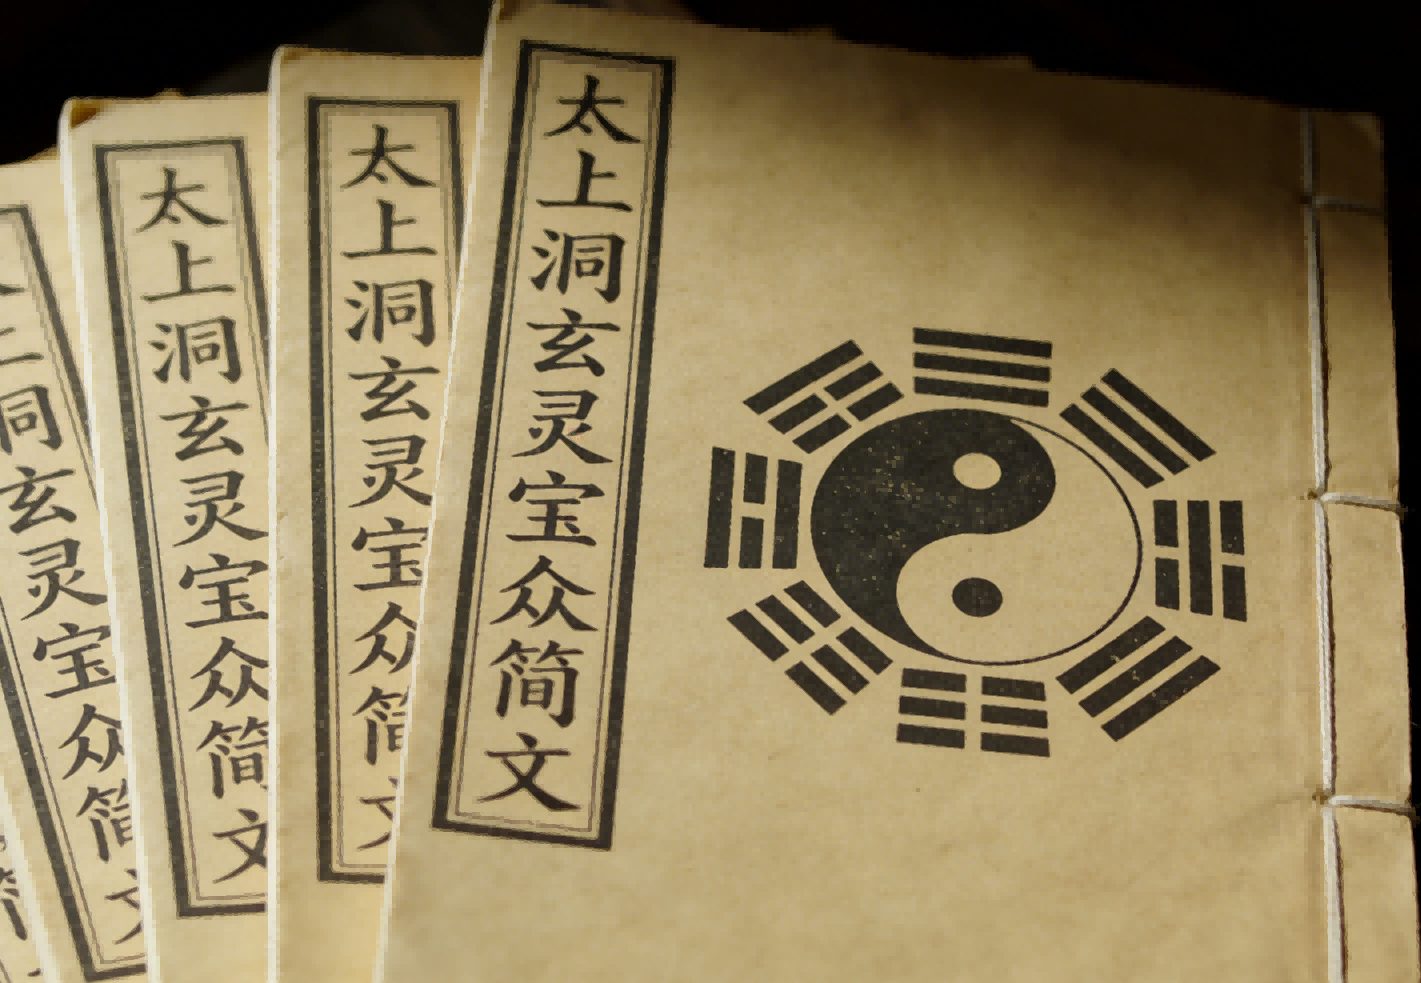 太上洞玄灵宝众简文
太上洞玄灵宝众简文
太上洞玄灵宝众简文
上同玄灵宝众简文